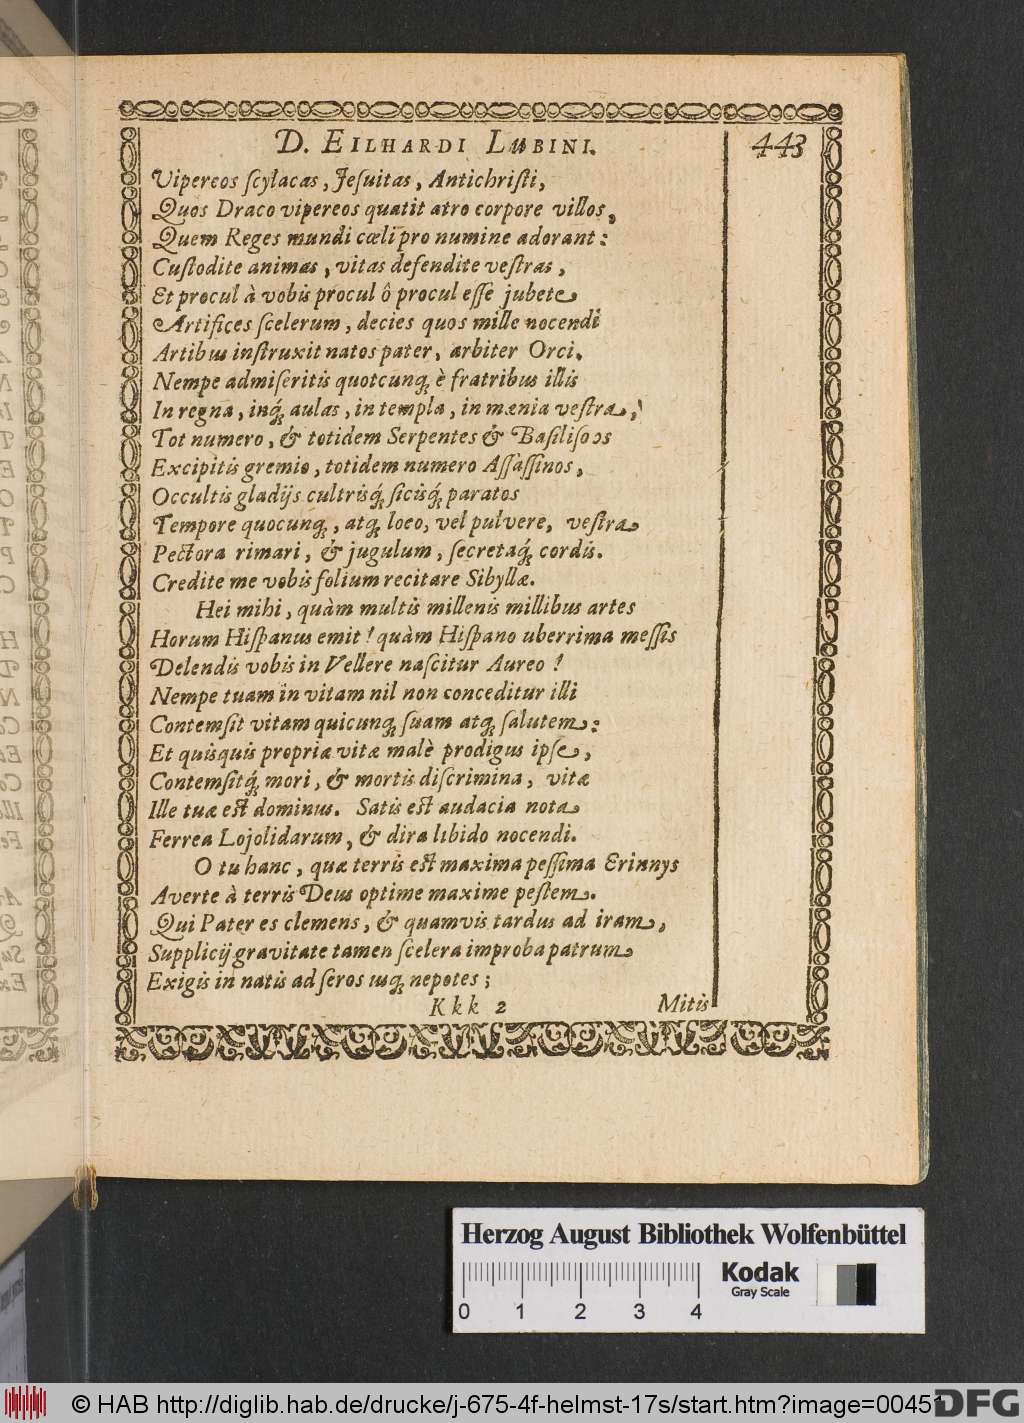 D. EILHARDI LUBINI.
443
Vipereos ſcylacas, Jeſuitas, Antichriſti,
Quos Draco vipereos quatit atro corpore villos,
Quem Reges mundi cœli pro numine adorant:
Cuſtodite animas, vitas defendite veſtras,
Et procul à vobis procul ô procul eſſe jubete
Artifices ſcelerum, decies quos mille nocendi
Artibus inſtruxit natos pater, arbiter Orci.
Nempe admiſeritis quotcunq́; è fratribus illis
In regna, inq́; aulas, in templa, in mœnia veſtra,
Tot numero, & totidem Serpentes & Baſiliſcos
Excipitis gremio, totidem numero Aſſaſſinos,
Occultis gladijs cultrisq́; ſicisq́; paratos
Tempore quocunq́;, atq́; loco, vel pulvere, veſtra
Pectora rimari, & jugulum, ſecretaq́; cordis.
Credite me vobis folium recitare Sibyllæ.
Hei mihi, quàm multis millenis millibus artes
Horum Hiſpanus emit! quàm Hiſpano uberrima meſſis
Delendis vobis in Vellere naſcitur Aureo!
Nempe tuam in vitam nil non conceditur illi
Contemſit vitam quicunq́; ſuam atq́; ſalutem:
Et quisquis propriæ vitæ malè prodigus ipſe,
Contemſitq́; mori, & mortis diſcrimina, vitæ
Ille tuæ eſt dominus. Satis eſt audacia nota
Ferrea Lojolidarum, & dira libido nocendi.
O tu hanc, quæ terris eſt maxima peſſima Erinnys
Averte à terris Deus optime maxime peſtem.
Qui Pater es clemens, & quamvis tardus ad iram,
Supplicij gravitate tamen ſcelera improba patrum
Exigis in natis ad ſeros usq́; nepotes;
Kkk 2
Mitis
Herzog August Bibliothek Wolfenbüttel
Kodak
Gray Scale
0 1 2 3 4
© HAB http://diglib.hab.de/drucke/j-675-4f-helmst-17s/start.htm?image=00451
DFG